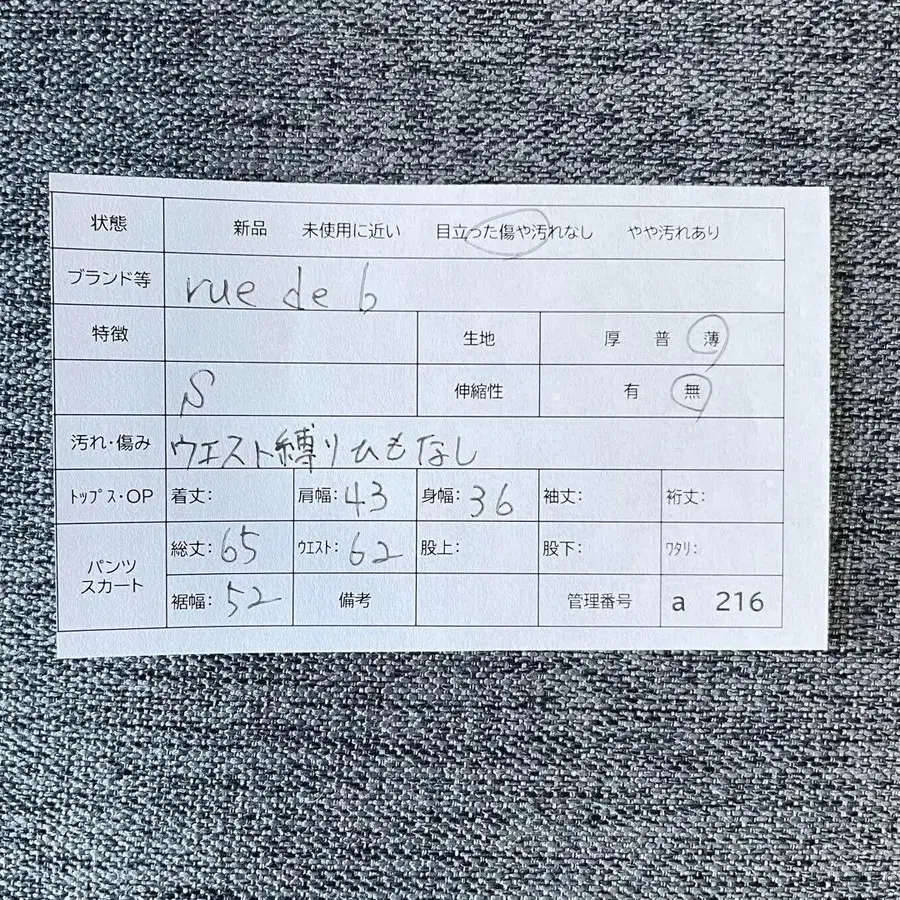 状態 新品 未使用に近い 目立った傷や汚れなし やや汚れあり
ブランド等 rue de b
特徴 生地 厚 普 薄
S 伸縮性 有 無
汚れ・傷み ウエスト縛りひもなし
トップス・OP 着丈: 肩幅: 43 身幅: 36 袖丈: 裄丈:
パンツ スカート 総丈: 65 ウエスト: 62 股上: 股下: ワタリ:
裾幅: 52 備考 管理番号 a 216